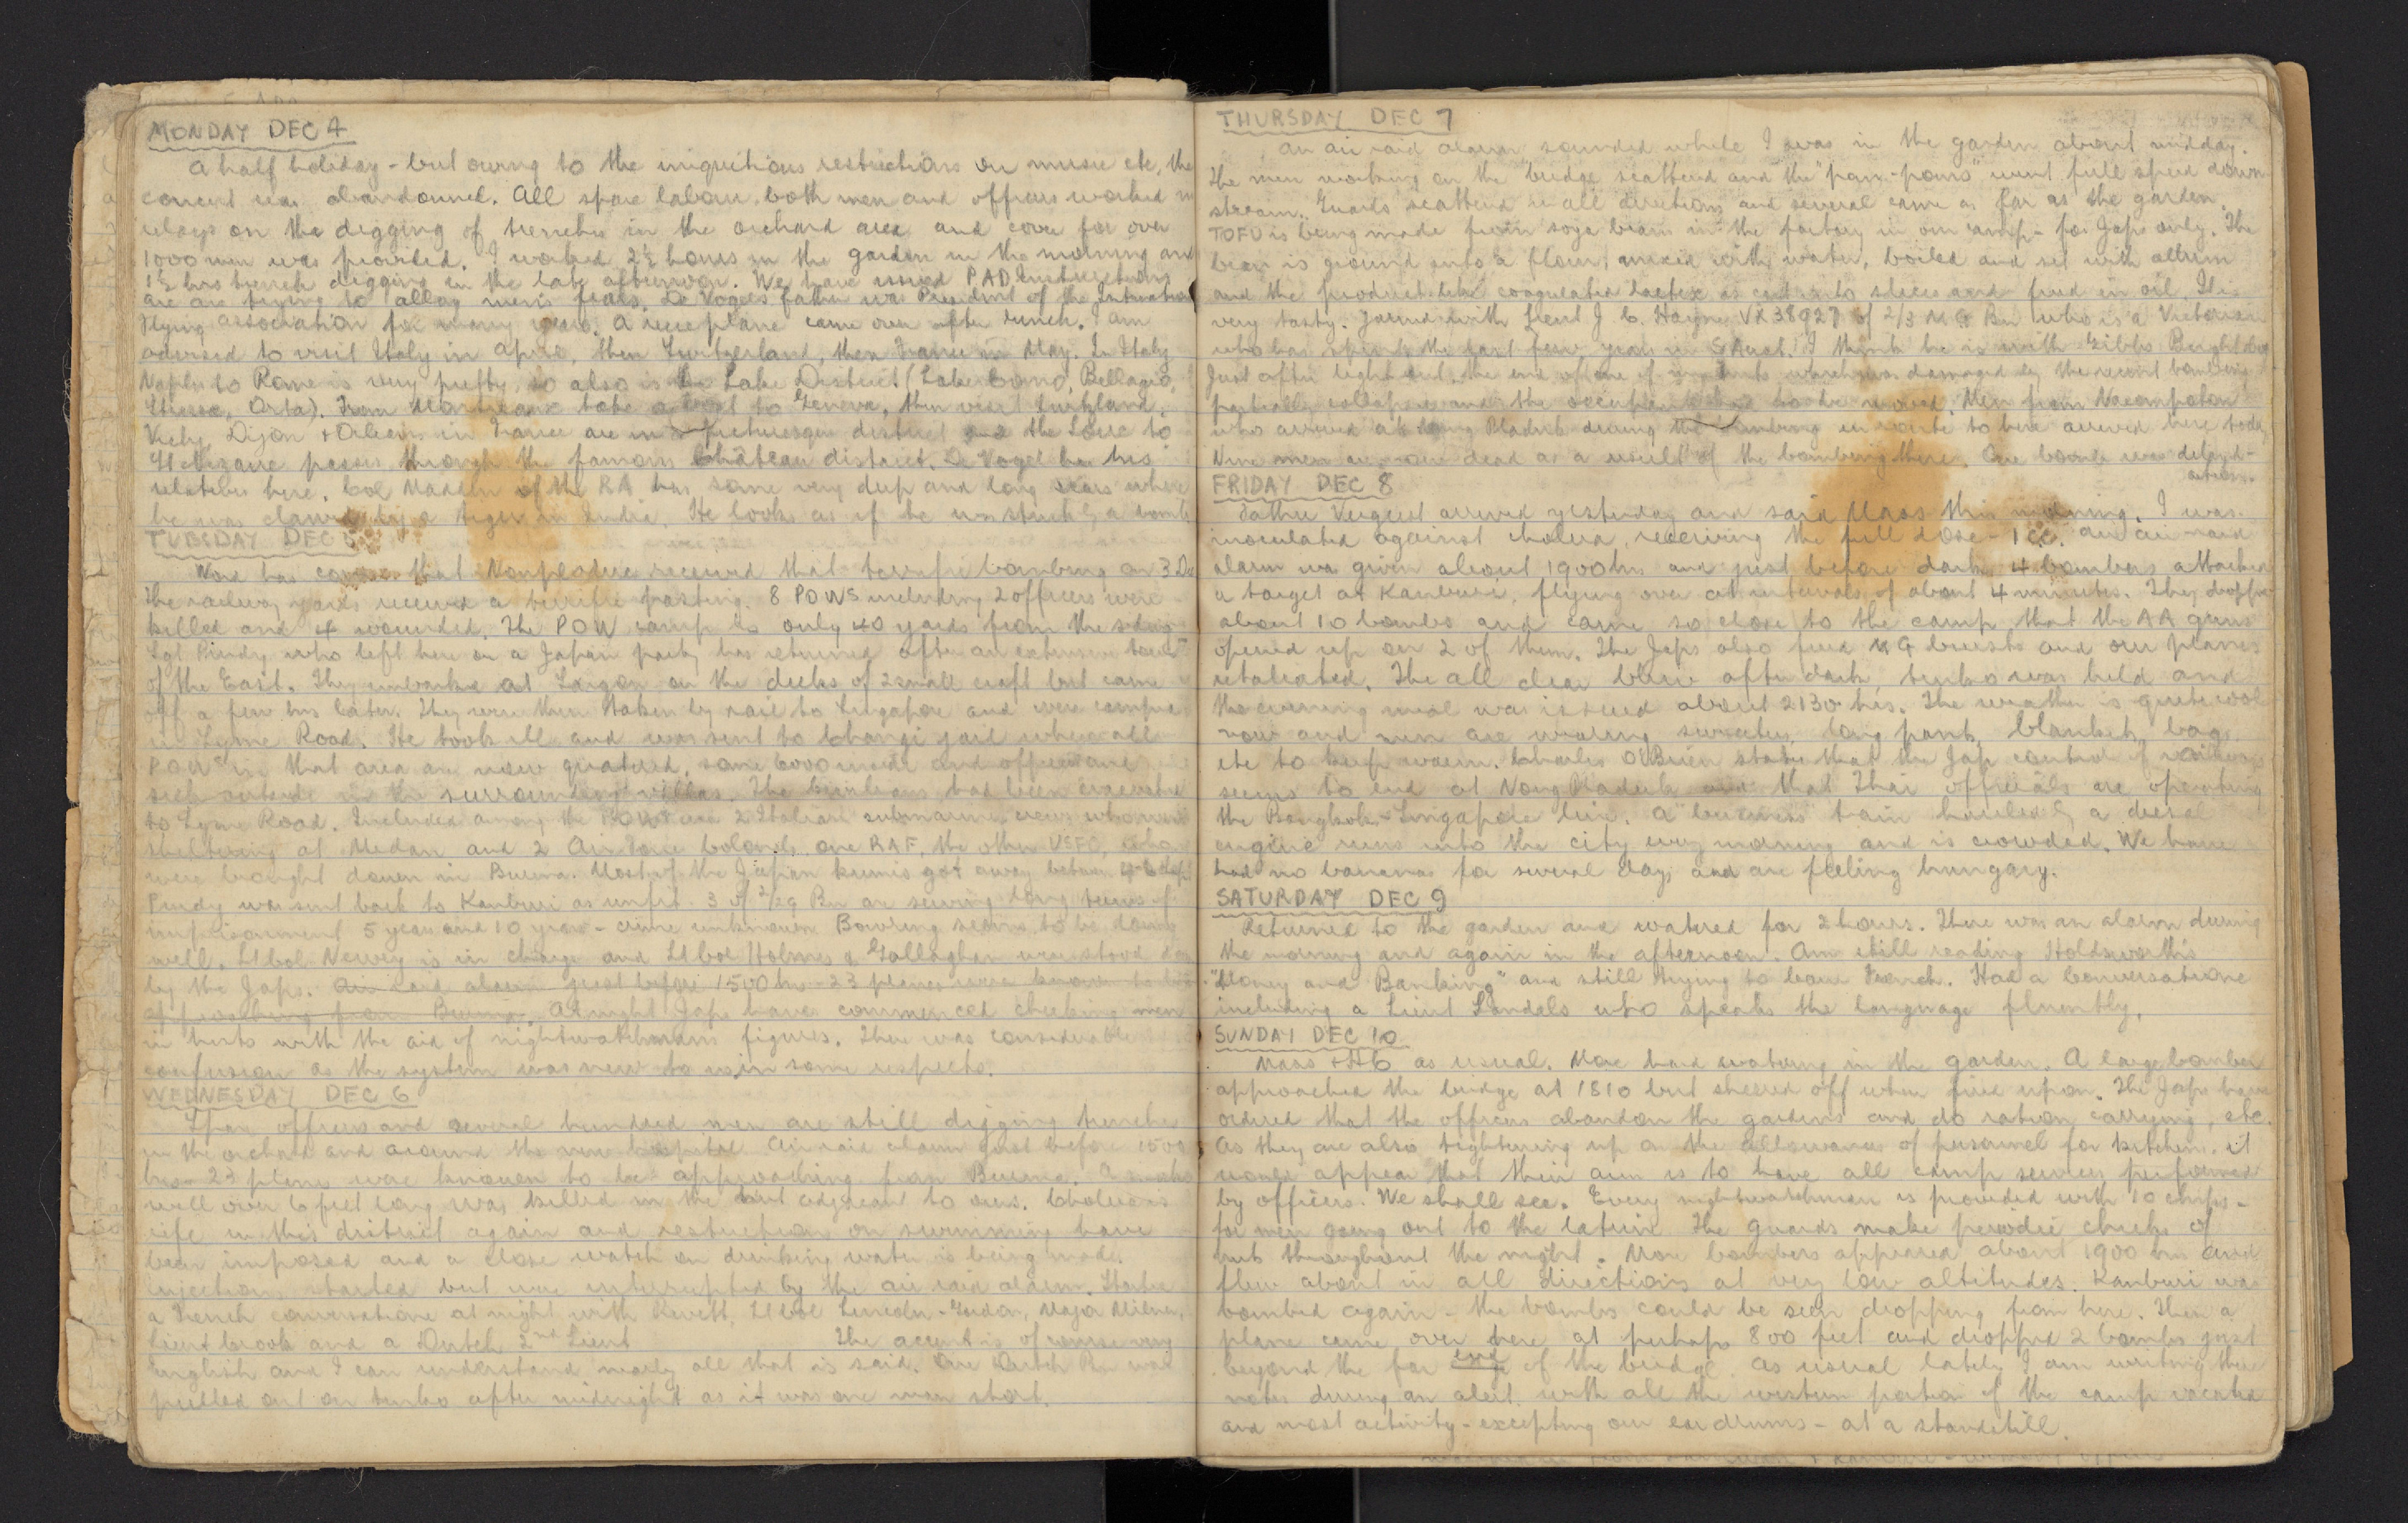 MONDAY DEC 4
A half holiday - but owing to the iniquitious restrictions on music etc, the
concert was abandonned. All spare labour, both men and officers worked in
relays on the digging of trenches in the orchard area and cover for over
1000 men was provided. I worked 2½ hours in the garden in the morning and
1½ hrs trench digging in the late afternoon. We have issued PAD Instructions
are are trying to allay men's fears. De Vogels father was President of the Internation
Flying association for many years. A recce plane came over after lunch. I am
advised to visit Italy in April, then Switzerland, then France in May. In Italy
Naples to Rome is very pretty, so also is the Lake District (Lake Como, Bellagio,
Stresa, Orta). From take a boat to Geneva, then visit
Vichy, Dijon + Orleans in France are in a picturesque district and the Loire to
St Nazaire passes through the famous Château district. De Vogel has his
relatives here. Col Madden of the RA has some very deep and long scars where
he was clawed by a tiger in India. He looks as if he was struck by a bomb
TUESDAY DEC 5
Word has come that Nonpladuc received that terrific bombing on 3 Dec
The railway yards received a terrific pasting. 8 POWs including 2 officers were
killed and 4 wounded. The POW camp is only 40 yards from the siding
Sgt Purdy who left here on a Japan party has returned after an extensive tour
of the East. They embarked at Saigon on the decks of 2 small craft but came
off a few hrs later. They were then taken by rail to Singapore and were camped
in Syme Road. He took ill and was sent to Changi gaol where all
POWs in that area are now quatered, some 6000 inside and officers and
sick outside in the surrounding villas. The civilians had been evacuated
to Syme Road. Included among the POWs are 2 Italian submarine crews who were
sheltering at Medan and 2 Air Force Colonels one RAF, the other USFC, who
were brought down in Burma. Most of the Japan kumis got away between 4-6 Sept
Purdy was sent back to Kanburi as unfit. 3 of 2/29 Bn are serving long terms of
imprisonment 5 years and 10 years - crime unknown Bowring seems to be doing
well. Lt Col Newey is in charge and Lt Col Holmes & Gallagher were stood down
by the Japs. Air raid alarm just before 1500 hrs - 23 planes were known to be
approaching from Burma. At night Japs have commenced checking men
in huts with the aid of nightwatchmans figures. There was considerable
confusion as the system was new to us in some respects.
WEDNESDAY DEC 6
officers and several hundred men are still digging trenches
in the orchard and around the new hospital. Air raid alarm just before 1500
hrs - 23 planes were known to be approaching from Burma. A snake
well over 6 feet long was killed in the hut adjacent to ours. Cholera is
rife in this district again and restrictions on swimming have
been imposed and a close watch on drinking water is being made.
Injections started but were interrupted by the air raid alarm. Started
a French conversatione at night with Kevett, Lt Col Lincoln-Gordon, Major Milner,
Lieut Crook and a Dutch 2nd Lieut The accent is of course very
English and I can understand nearly all that is said. One Dutch Bn was
pulled out on tenko after midnight as it was one man short.
THURSDAY DEC 7
An air raid alarm sounded while I was in the garden about midday.
The men working on the bridge scattered and the "pom-poms" went full speed down
stream. Guards scattered in all directions and several came as far as the garden.
TOFU is being made from soya beans in the factory in our camp - for Japs only. The
bean is ground into a flour, mixed with water, boiled and set with allum
and the product like coagulated lactex is cut into slices and fried in oil. It is
very tasty. with Lieut J. C. Hayne VX38927 of 2/3 MG Bn who is a Victorian
who has spent the past few years in S Aust. I think he is with Gibbs Bright &
Just after light out, the end of one of huts which was damaged by the recent bombing
partially collapsed and the occupants had to be moved. Men from Nacompaton
who arrived at Nong Pladuk during the bombing en route to here arrived here today
Nine men are now dead as a result of the bombing there. One bomb was delayed-
action.
FRIDAY DEC 8
Father Vergeest arrived yesterday and said Mass this morning. I was
inoculated against cholera, receiving the full dose - 1 cc. An air raid
alarm was given about 1900 hrs and just before dark 4 bombers attacked
a target at Kanburi, flying over at intervals of about 4 minutes. They dropped
about 10 bombs and came so close to the camp that the AA guns
opened up on 2 of them. The Japs also fired MG bursts and our planes
retaliated. The all clear blew after dark, tenko was held and
the evening meal was issued about 2130 hrs. The weather is quite cool
now and men are wearing sweaters, long pants, blankets, bags,
etc to keep warm. Charles O'Brien states that the Jap control of railways
seems to end at Nong Pladuk and that Thai officials are operating
the Bangkok-Singapore line. A "business" train hauled by a diesel
engine runs into the city every morning and is crowded. We have
had no bananas for several days and are feeling hungary.
SATURDAY DEC 9
Returned to the garden and watered for 2 hours. There was an alarm during
the morning and again in the afternoon. Am still reading Holdsworth's
"Money and Banking" and still trying to learn French. Had a conversatione
including a Lieut Landels who speaks the language fluently.
SUNDAY DEC 10
Mass + HC as usual. More hard watering in the garden. A large bomber
approached the bridge at 1810 but sheered off when fired upon. The Japs have
ordered that the officers abandon the gardens and do ration carrying, etc.
As they are also tightening up on the allowances of personnel for kitchens, it
would appear that their aim is to have all camp services performed
by officers. We shall see. Every nightwatchman is provided with 10 chips -
for men going out to the latrine. The guards make periodic checks of
huts throughout the night. More bombers appeared about 1900 hrs and
flew about in all directions at very low altitudes. Kanburi was
bombed again - the bombs could be seen dropping from here. Then a
plane came over here at perhaps 800 feet and dropped 2 bombs just
beyond the far end of the bridge. As usual lately I am writing these
notes during an alert with all the western portion of the camp vacated
and most activity - excepting our ear drums - at a standstill.